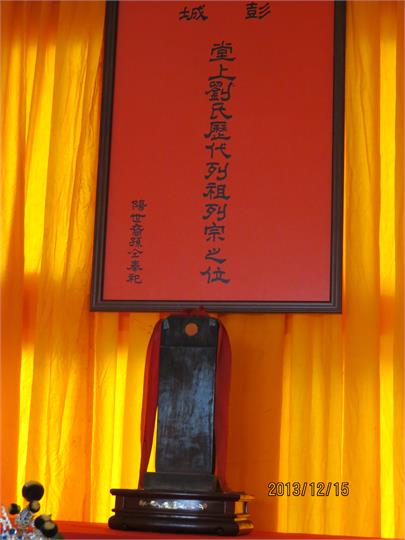 彭城
堂上劉氏歷代列祖列宗之位
陽世裔孫仝奉祀
2013/12/15